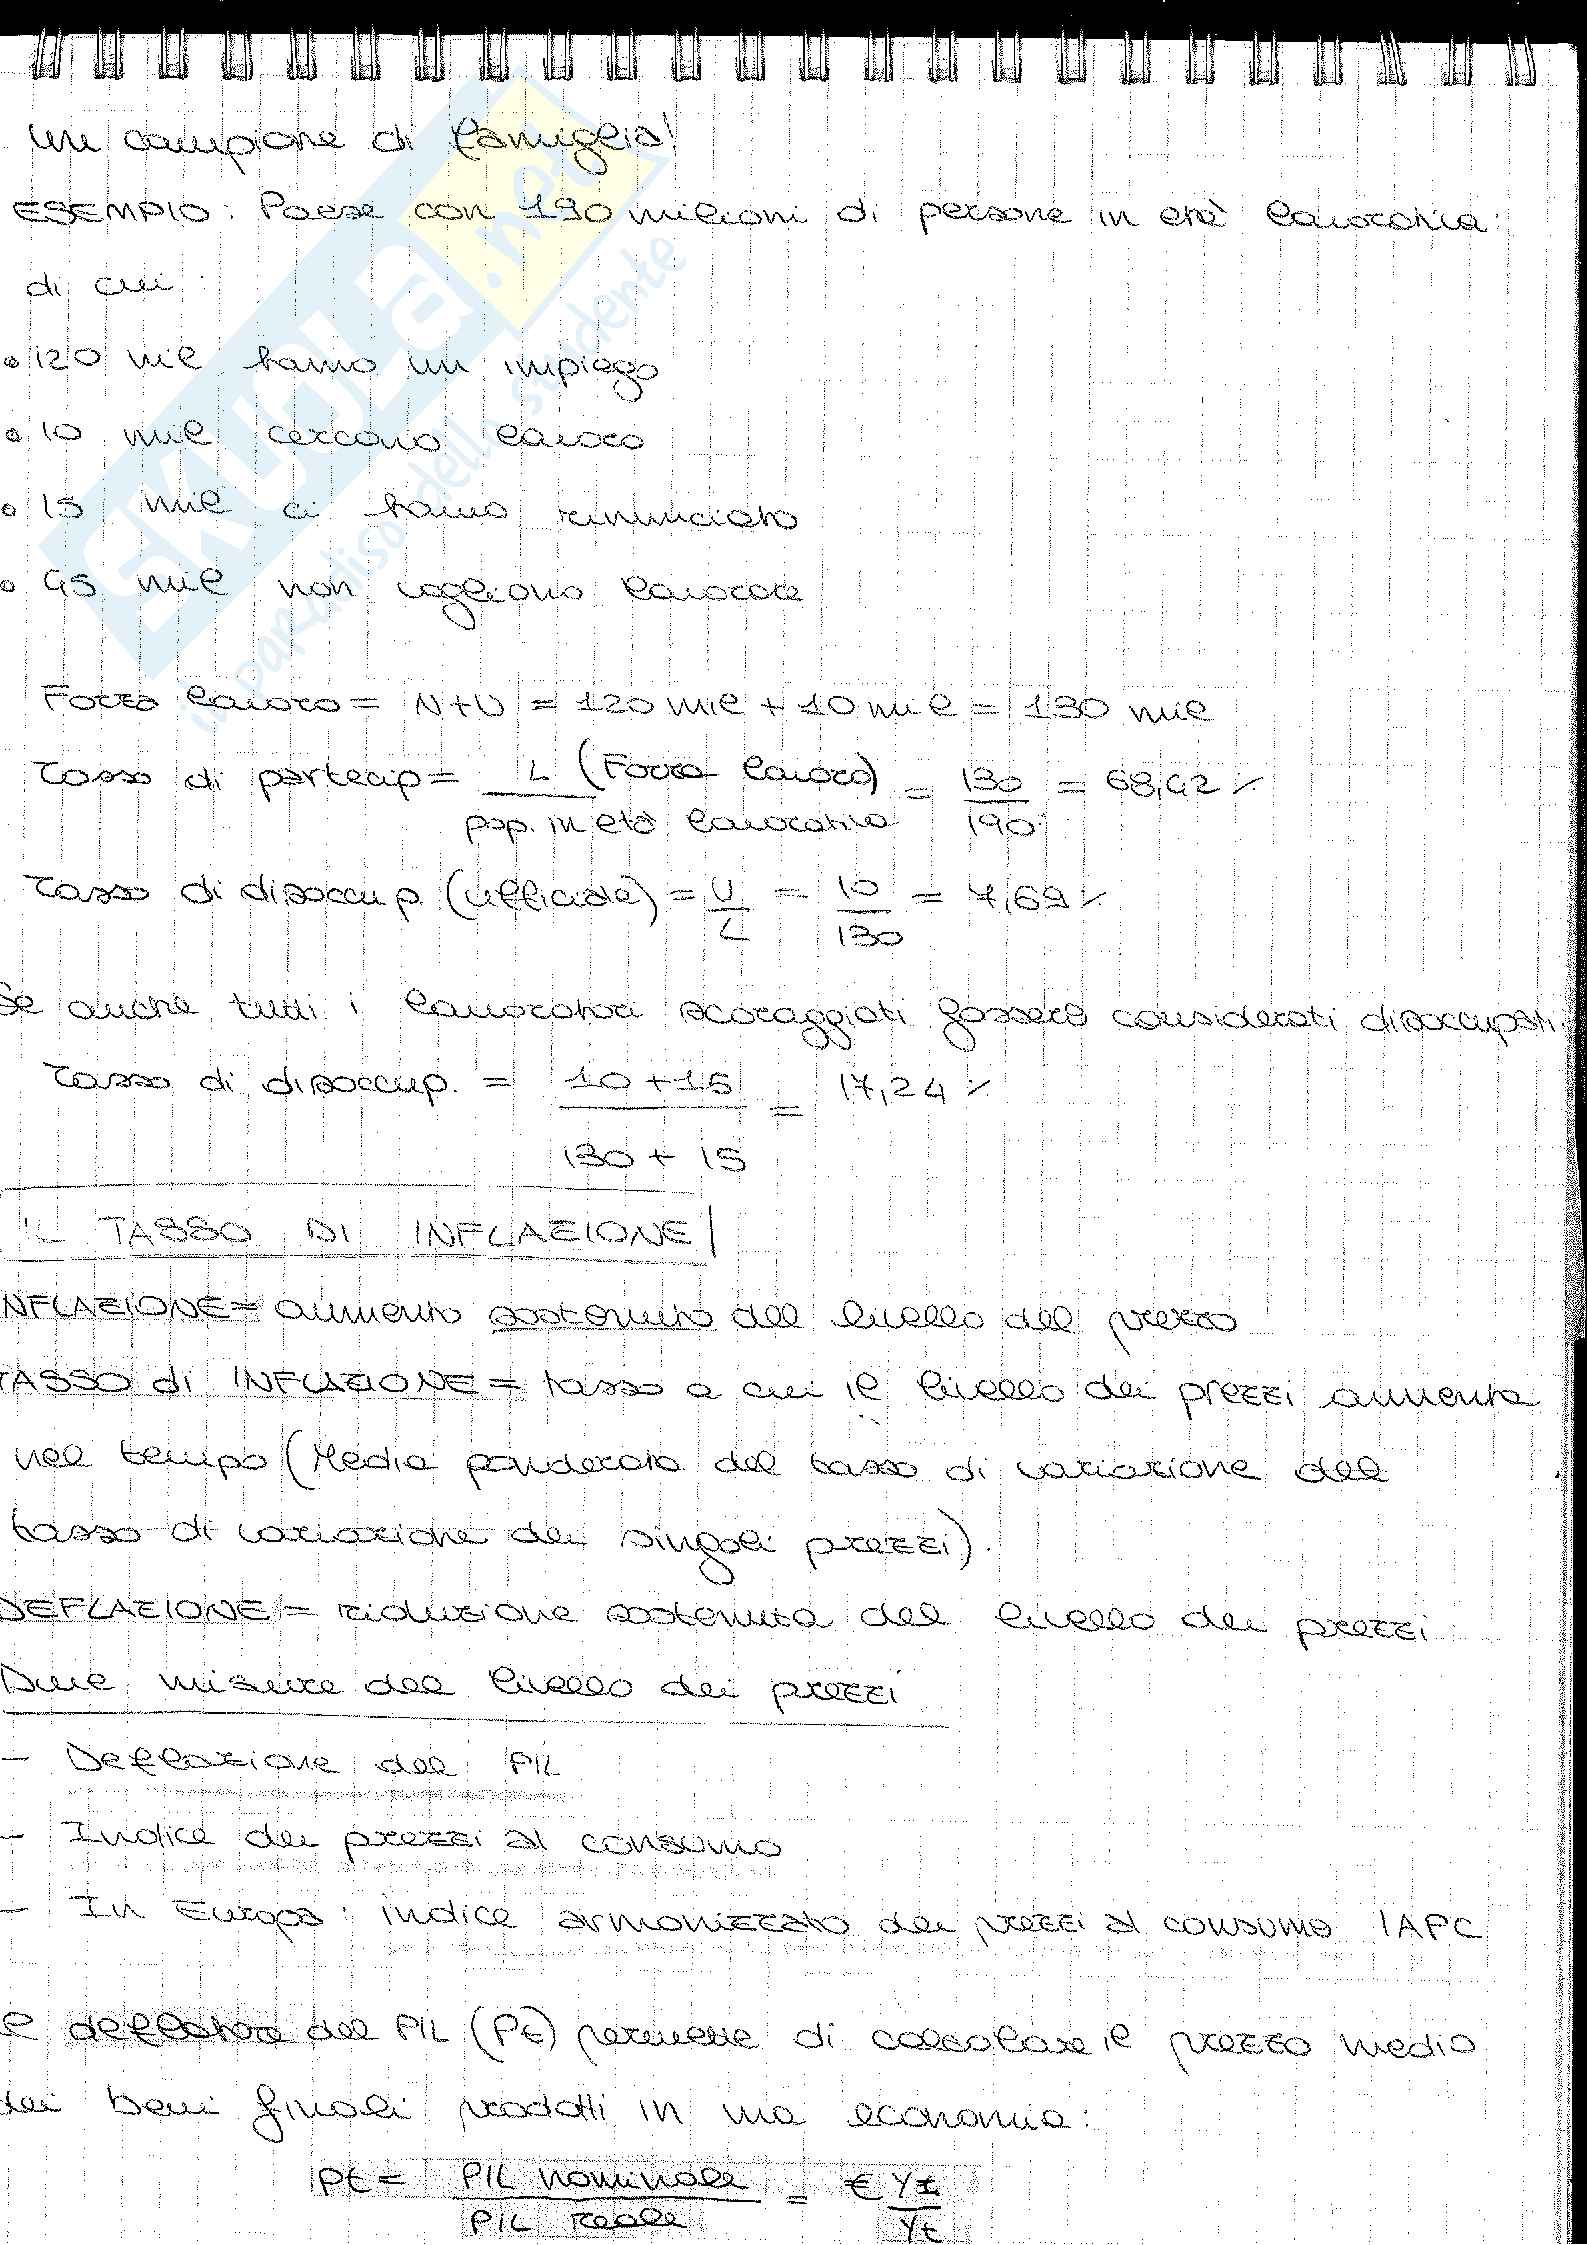 un campione di famiglia!
ESEMPIO: Paese con 190 milioni di persone in età lavorativa:
di cui:
• 120 mil hanno un impiego
• 10 mil cercano lavoro
• 15 mil ci hanno rinunciato
• 45 mil non vogliono lavorare
Forza lavoro = N+U = 120 mil + 10 mil = 130 mil
Tasso di partecip = L (Forza lavoro) / pop. in età lavorativa = 130/190 = 68,42 %
Tasso di disoccup. (ufficiale) = U/L = 10/130 = 7,69 %
Se anche tutti i lavoratori scoraggiati fossero considerati disoccupati
Tasso di disoccup. = 10+15 / 130+15 = 17,24 %
IL TASSO DI INFLAZIONE
INFLAZIONE = aumento sostenuto del livello del prezzo
TASSO di INFLAZIONE = tasso a cui il livello dei prezzi aumenta
nel tempo (Media ponderata del tasso di variazione del
tasso di variazione dei singoli prezzi).
DEFLAZIONE = riduzione sostenuta del livello dei prezzi
Due misure del livello dei prezzi
- Deflazione del PIL
- Indice dei prezzi al consumo
- In Europa: indice armonizzato dei prezzi al consumo IAPC
Il deflatore del PIL (Pt) permette di calcolare il prezzo medio
dei beni finali prodotti in una economia:
Pt = PIL nominale / PIL reale = € Yt / Yt
SKUOLA.net
il paradiso dello studente